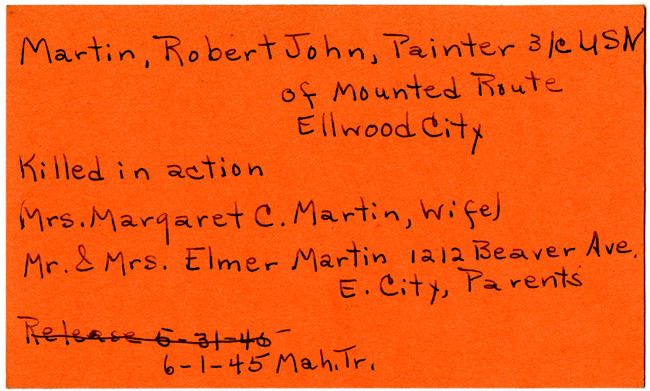 Martin, Robert John, Painter 3/c USN
of Mounted Route
Ellwood City
Killed in action
(Mrs. Margaret C. Martin, Wife)
Mr. & Mrs. Elmer Martin 1212 Beaver Ave.
E. City, Parents
Release 5-31-46
6-1-45 Mah. Tr.